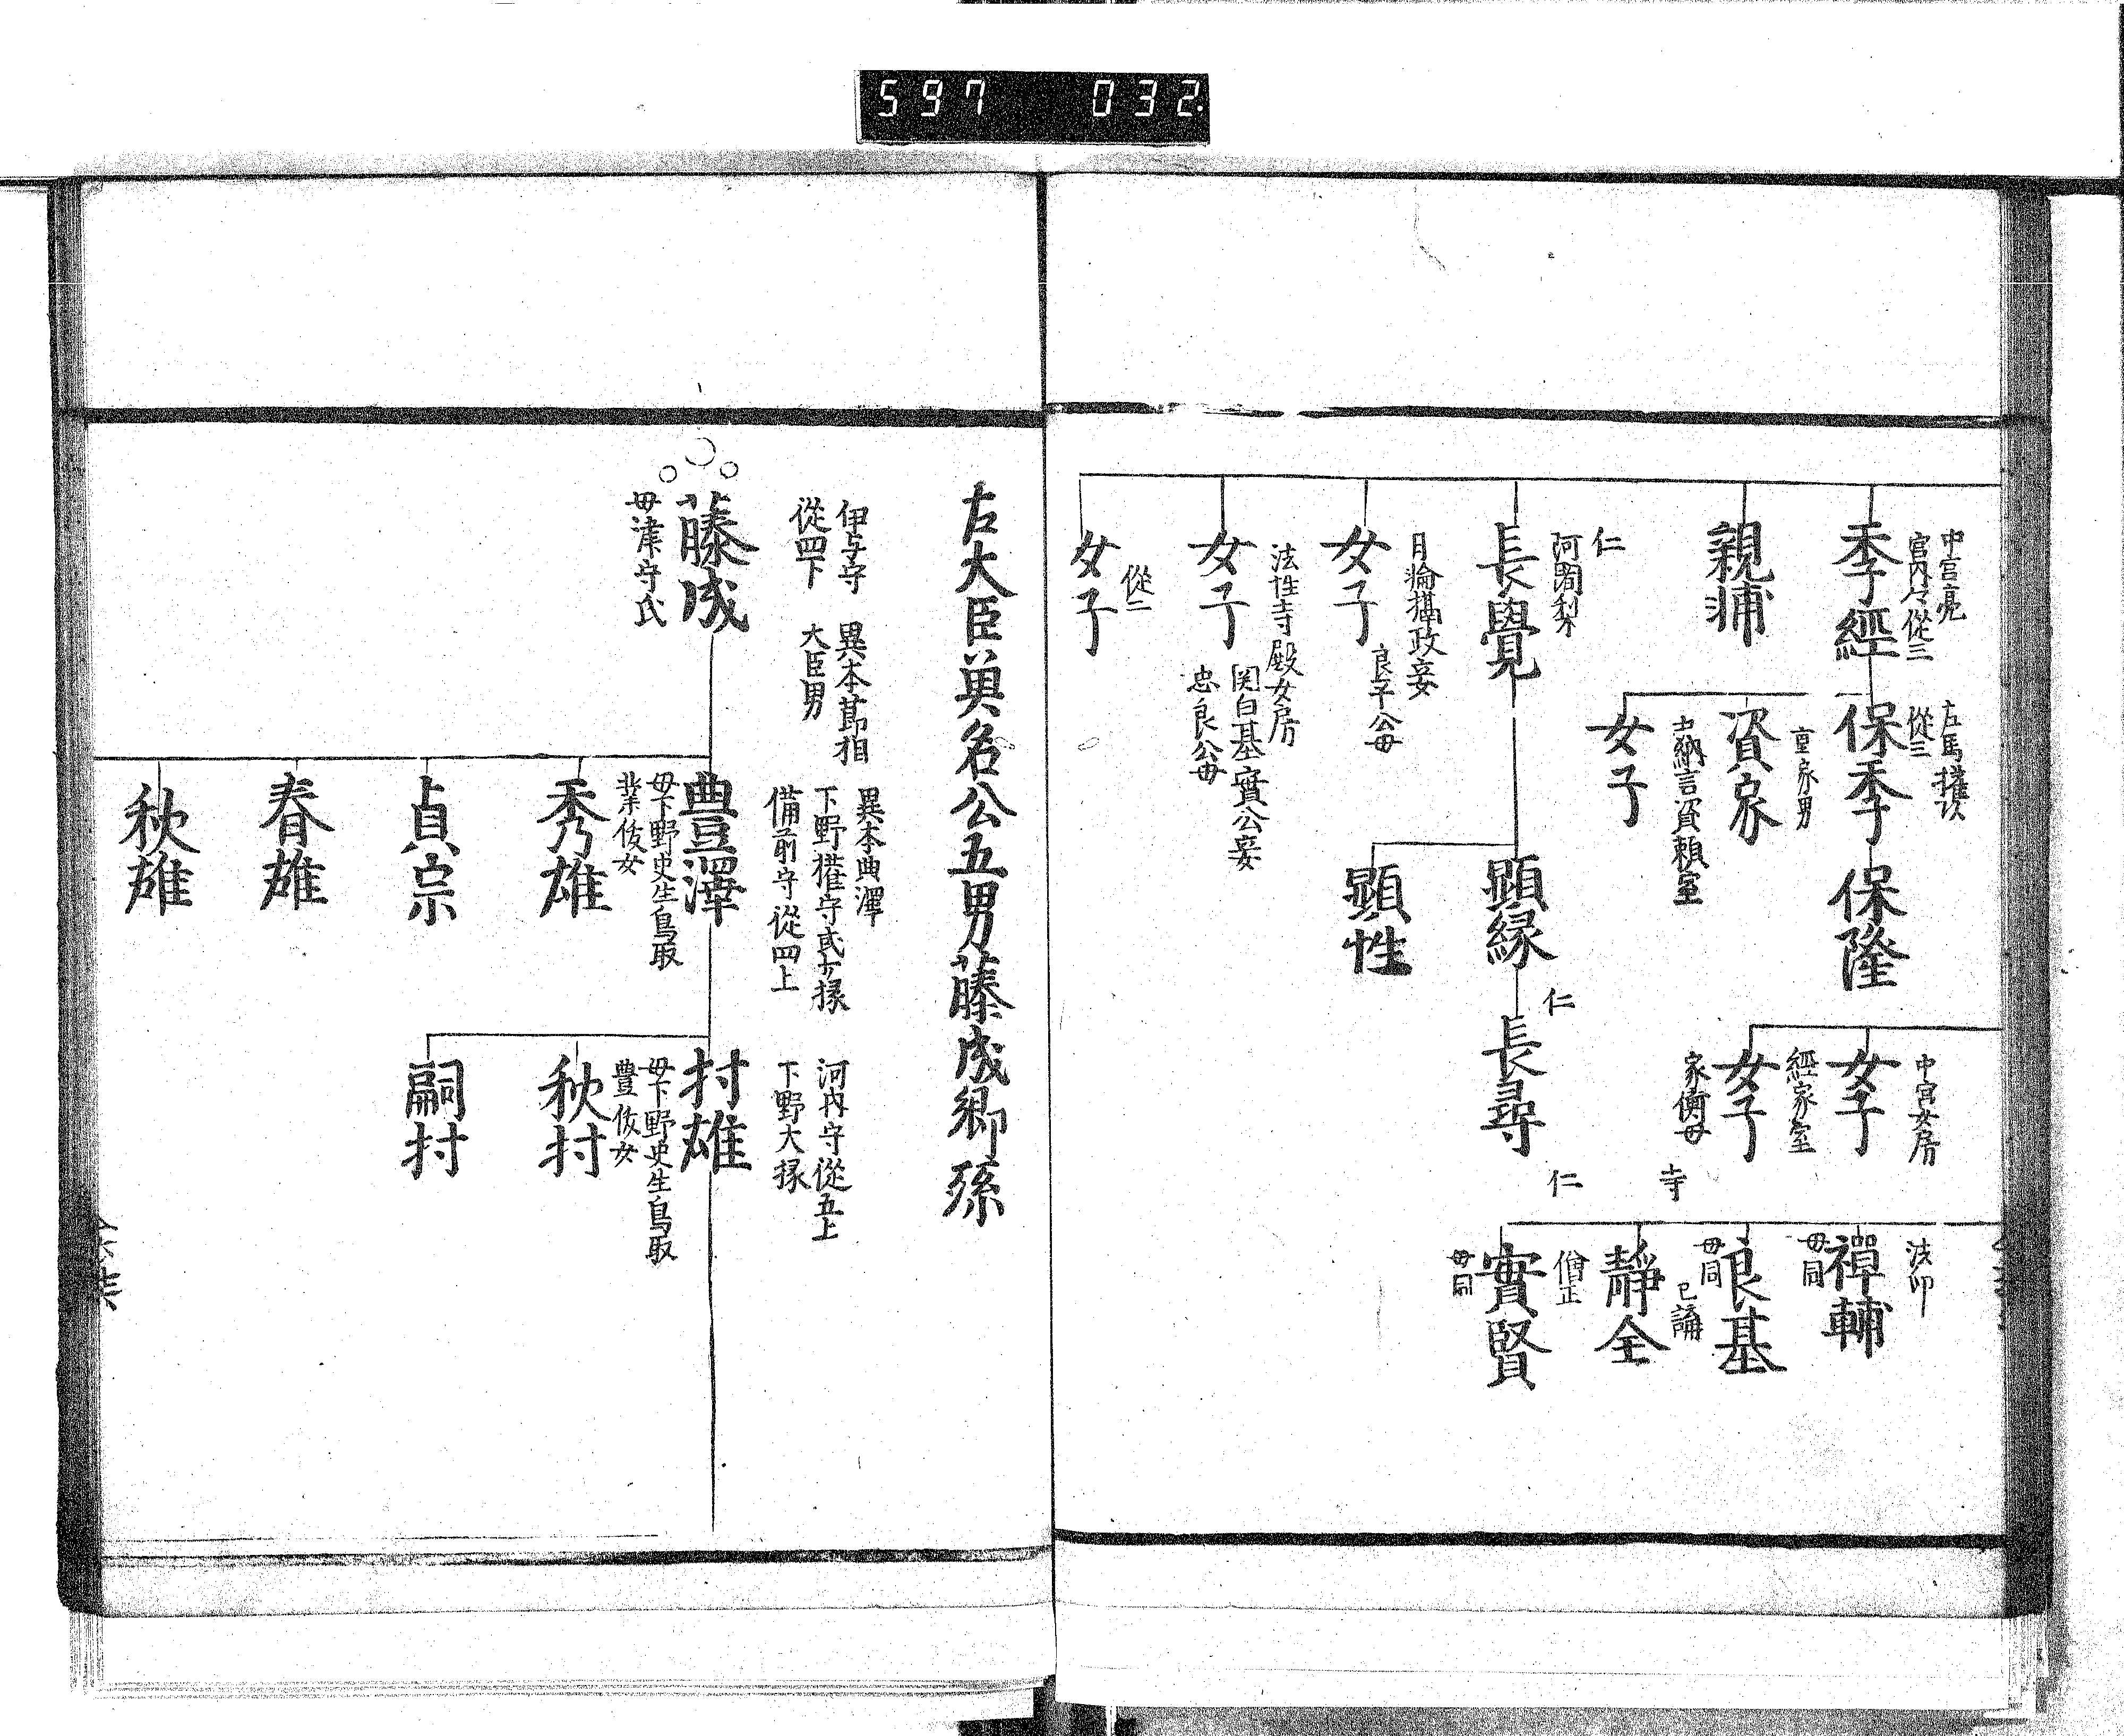 597 032.
中宮亮
宮内々從三
季經
左馬權頭
從三
保季
保隆
中宮女房
女子
經家室
女子
家衡母
法印
禪輔
母同
良基
母同
寺
已講
靜全
仁
僧正
實賢
母同
親輔
重家男
資家
女子
大納言資頼室
仁
阿闍梨
長覺
顯縁
仁
長尋
顯性
月輪攝政妾
女子
良平公母
法性寺殿女房
女子
関白基實公妾
忠良公母
從二
女子
左大臣魚名公五男藤成卿孫
伊与守
從四下
異本節相
大臣男
藤成
母津守氏
異本曲澤
下野權守貳す掾
備前守從四上
豊澤
母下野史生鳥取
業俊女
河内守從五上
下野大掾
村雄
母下野史生鳥取
豊俊女
秀雄
貞宗
春雄
秋雄
秋村
嗣村